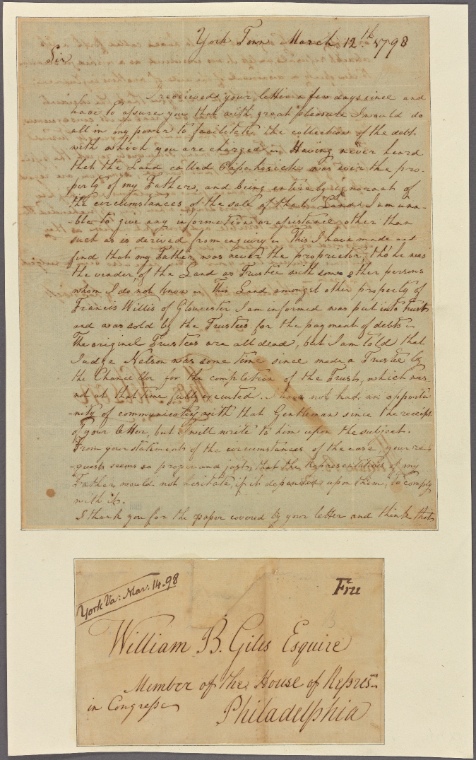 York Town March 12th 1798
Sir
I received your letter a few days since and
have to assure you that with great pleasure I would do
all in my power to facilitate the collection of the debt
with which you are charged. Having never heard
that the Land called Capahosick was ever the pro-
perty of my Fathers, and being entirely ignorant of
the circumstances of the sale of that Land, I am una-
ble to give any information upon it other than
such as is derived from enquiry. This I have made and
find that my Father was never the proprietor, tho he was
the vendor of the Land as Trustee with some other persons
whom I do not know. This Land amongst other property of
Francis Willis of Gloucester I am informed was put into trust
and was sold by the Trustees for the payment of debts.
The original Trustees are all dead, but I am told that
Judge Nelson was some time since made a Trustee by
the Chancellor for the completion of the Trust, which was
not at that time fully executed. I have not had an opportu-
nity of communicating with that Gentleman since the receipt
of your letter, but will write to him upon the subject.
From your statement of the circumstances of the case your re-
quest seems so proper and just, that the Representatives of my
Father would not hesitate, if it depended upon them, to comply
with it.
I thank you for the paper covered by your letter and think that
York Va: Mar. 14. 98
Free
William B. Giles Esquire
Member of the House of Represt
in Congress
Philadelphia